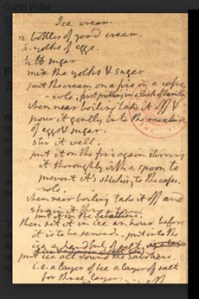 Ice cream.
2 bottles of good cream.
6 yolks of eggs.
1/2 lb sugar
mix the yolks & sugar
put the cream on a fire in a casse-
role, first putting in a stick of vanilla
when near boiling take it off &
pour it gently into the mixture
of eggs & sugar.
stir it well.
put it on the fire again stirring
it thoroughly with a spoon to
prevent it's sticking to the casse-
role.
when near boiling take it off and
strain it
put it in the Sabottiere
then set it in ice an hour before
it is to be served. put into the
ice a handful of salt.
put ice all around the Sabottiere
i.e. a layer of ice a layer of salt
for three layers.